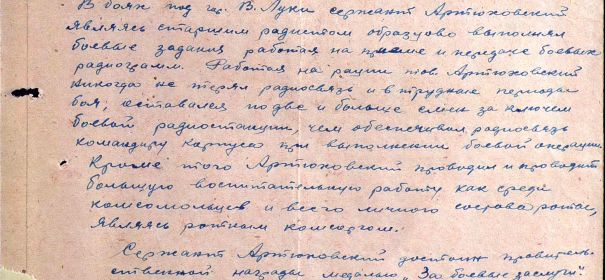 В боях под гор. В. Луки сержант Артюховский
являясь старшим радистом образцово выполнял
боевые задания работая на приеме и передаче боевых
радиограмм. Работая на рации тов. Артюховский
никогда не терял радиосвязь и в трудные периоды
боя, оставался по две и больше смен за ключем
боевой радиостанции, чем обеспечивал радиосвязь
командиру корпуса при выполнении боевой операции.
Кроме того Артюховский проводил и проводит
большую воспитательную работу как среди
комсомольцев и всего личного состава роты,
являясь ротным комсоргом.
Сержант Артюховский достоин правитель-
ственной награды медалью "За боевые заслуги".